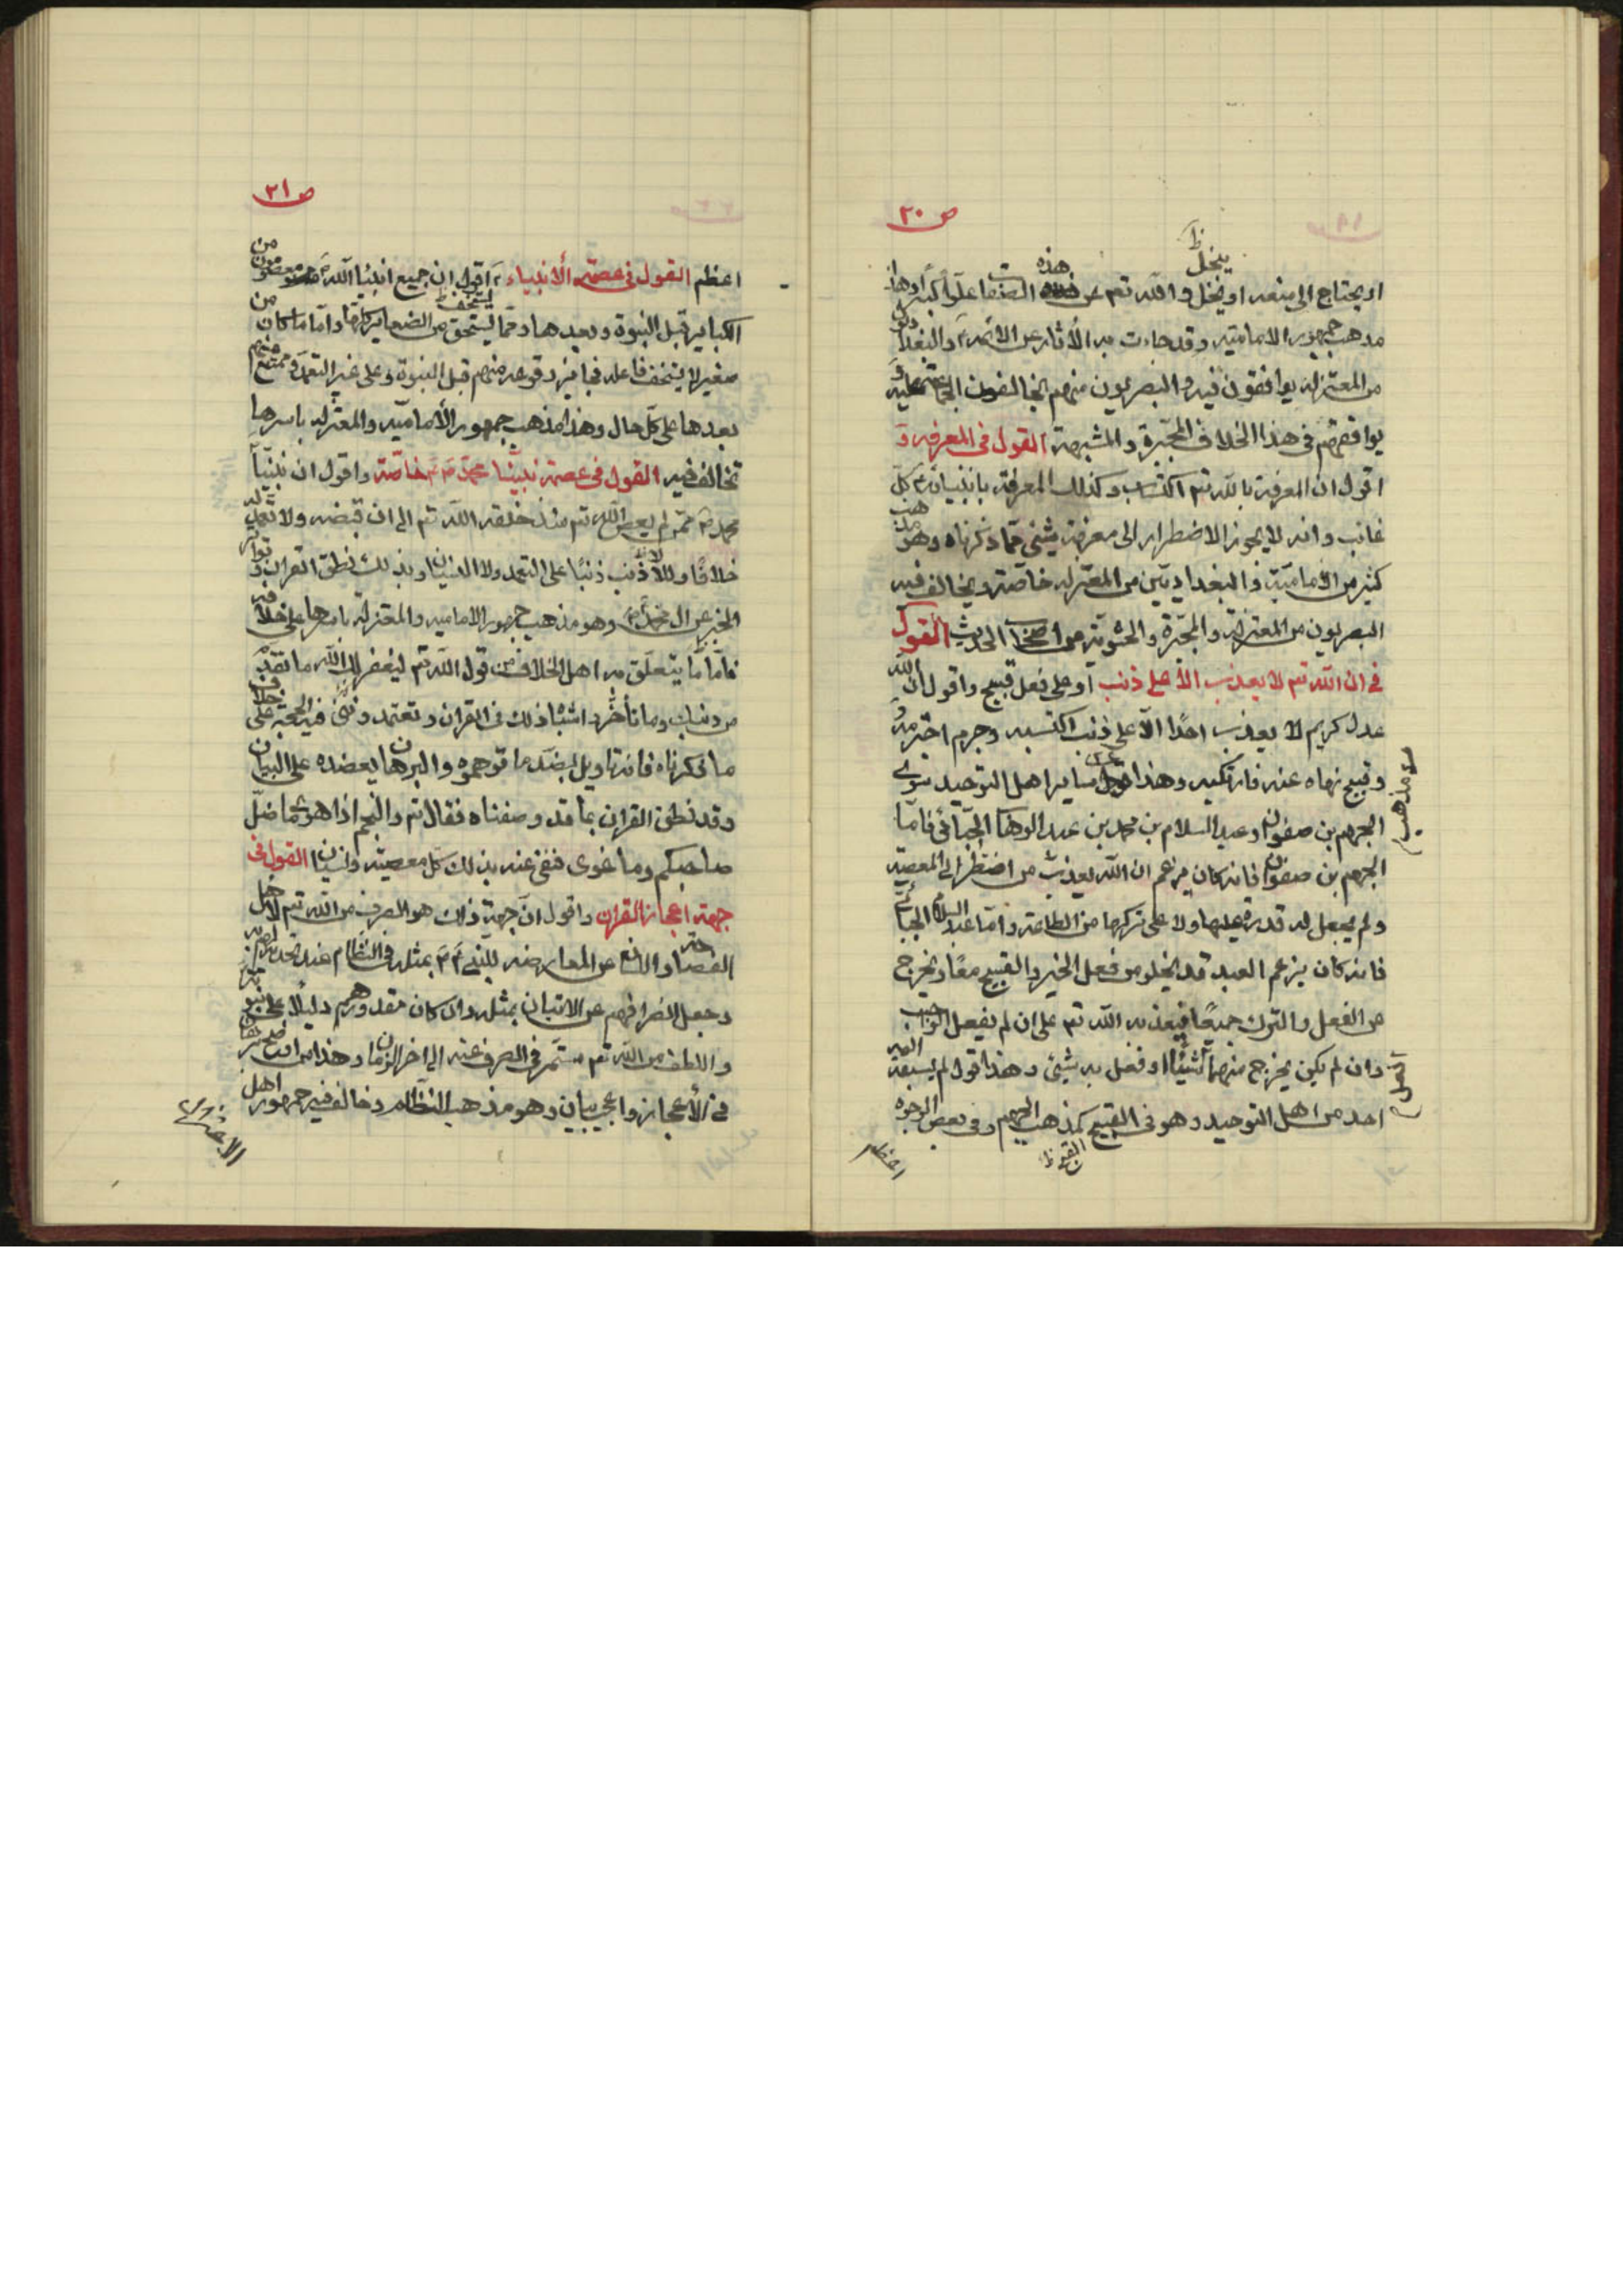 ص ٢٠
او يحتاج الى منعه او يبخل والله تعم عن هذه الصفات علوًا كبيرًا وهذا
مذهب جمهور الامامية وقد جاءت به الأثار عن الائمة ع والبغداديون
من المعتزلة يوافقون فيه والبصريون منهم يخالفون الجماعة عليه و
يوافقهم في هذا الخلاف المجبّرة والمشبهة القول في المعرفة و
اقول ان المعرفة بالله تعم اكتساب وكذلك المعرفة بانبيائه ع وكل
غائب وانه لا يجوز الاضطرار الى معرفة شيئ مما ذكرناه وهو مذهب
كثير من الأمامية والبغداديين من المعتزلة خاصّة ويخالف فيه
البصريون من المعتزلة والمجبّرة والحشوية من اصحاب الحديث القول
في ان الله تعم لا يعذب الا على ذنب او على فعل قبيح واقول ان الله
عدل كريم لا يعذب احدًا الّا على ذنب اكتسبه وجرم اجترمه و
قبيح نهاه عنه فارتكبه وهذا مذهب ساير اهل التوحيد سوى
الجهم بن صفوان وعبد السلام بن محمد بن عبد الوهاب الجبّائي فامّا
الجهم بن صفوان فانه كان يزعم ان الله يعذب من اضطره الى المعصية
ولم يجعل له قدرة عليها ولا على تركها من الطاعة وامّا عبد السلام الجبائي
فانه كان يزعم العبد قد يخلو من فعل الخير والقبيح معًا ويخرج
عن الفعل والترك جميعًا فيعذبه الله تعم على ان لم يفعل الواجب
وان لم يكن يخرج منهما شيئًا او فعل به شيئ وهذا قول لم يسبقه اليه
احد من اهل التوحيد وهو في القبيح كمذهب الجهم وفي بعض الوجوه
القبح ظ
اعظم
ص ٢١
اعظم القول في عصمة الأنبياء ع اقول ان جميع انبياء الله ع معصومون من
الكباير قبل النبوة وبعدها ومما يستخف من الصغاير كلها واما ما كان من
صغير لا يستخف فاعله فجايز وقوعه منهم قبل النبوة وعلى غير التعمد وممتنع منهم
بعدها على كل حال وهذا مذهب جمهور الأمامية والمعتزلة باسرها
تخالف فيه القول في عصمة نبيّنا محمّد ص خاصّة واقول ان نبيّنا
محمد ص ممن لم يعص الله تعم منذ خلقه الله تعم الى ان قبضه ولا تعمد له
خلافًا ولا اذنب ذنبًا على التعمد ولا النسيان وبذلك نطق القران وتواتر
الخبر عن ال محمد ص وهو مذهب جمهور الامامية والمعتزلة باسرها على خلافه
فامّا ما يتعلّق به اهل الخلاف من قول الله تعم ليغفر لك الله ما تقدّم
من ذنبك وما تأخر واشباه ذلك في القران وتعتمد ونه في الحجة على خلاف
ما ذكرناه فانه تاويل بضد ما توهموه والبرهان يعضده على البيان
وقد نطق القران بما قد وصفناه فقال تعم والنجم اذا هوى ما ضلّ
صاحبكم وما غوى فنفى عنه بذلك كل معصية ونسيان القول في
جهة اعجاز القران واقول ان جهة ذلك هو الصرف من الله تعم لاهل
الفصاحة واللسن عن المعارضه للنبي ص بمثله في النظام عند تحديه لهم
وجعل انصرافهم عن الاتيان بمثله وان كان مقدورهم دليلًا على نبوته
واللطف من الله تعم مستمر في الصرف عنه الى اخر الزمان وهذا من اوضح برهان
في الأعجاز واعجب بيان وهو مذهب النظام وخالف فيه جمهور اهل
الاعتزال